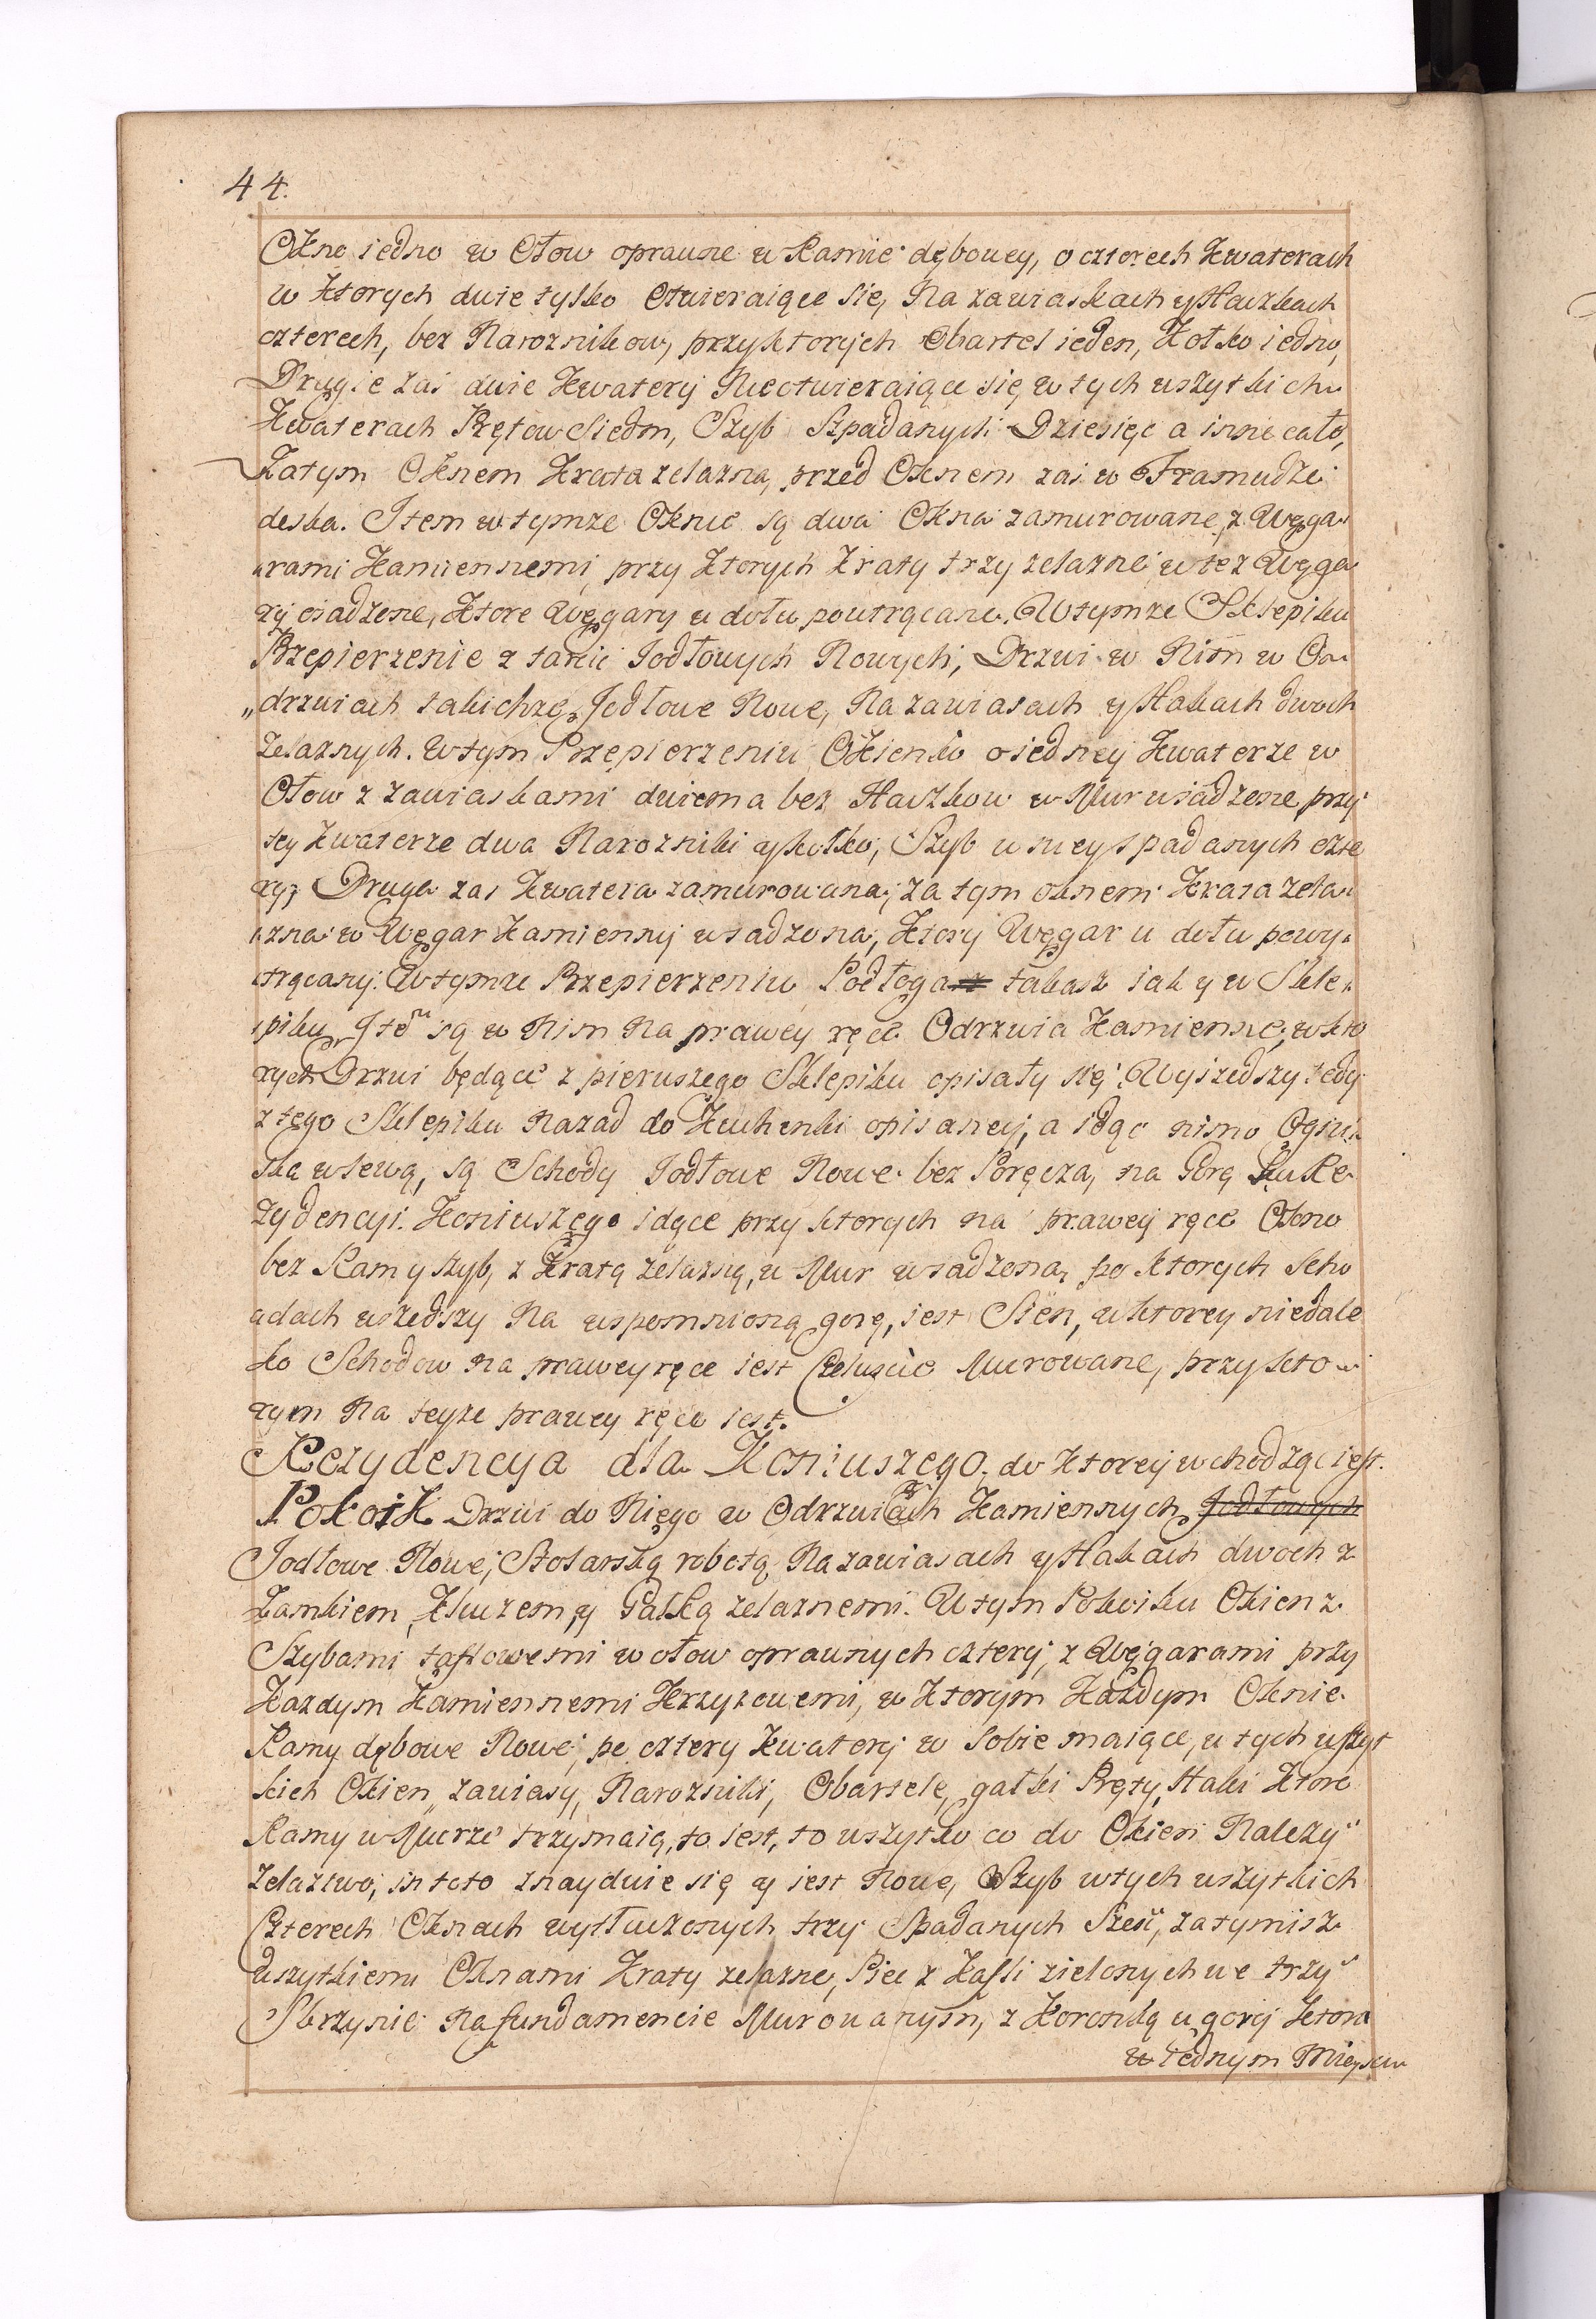 44.
Okno iedno w Ołow oprawne w Ramie dębowey, o czterech kwaterach
w ktorych dwie tylko otwieraiące się, Na zawiaskach y Haczkach
czterech, bez Naroznikow, przy ktorych Obartel ieden, Kołko iedno,
Drugie zaś dwie kwatery Nieotwieraiące się w tych wszytkich
Kwaterach Prętow Siedm, Szyb Szpadanych Dziesięc a inne całe,
Zatym Oknem Krata zelazna, przed Oknem zaś w Framudze
deska. Item w tymze Oknie są dwa Okna zamurowane, z Węga„
„rami Kamiennemi przy ktorych kraty trzy zelazne w tez Węga
ry osadzone, ktore Węgary u dołu poutrącane. W tymze Sklepiku
Przepierzenie z tarcic Jodłowych Nowych, Drzwi w Nim w Od„
„drzwiach takichze Jodłowe Nowe, Na zawiasach y Hakach dwoch
Zelaznych. W tym Przepierzeniu Okienko o iedney kwaterze w
Ołow z zawiaskami dwiema bez Haczkow w Mur wsadzone przy
tey kwaterze dwa Narozniki y kołko, Szyb w niey spadanych czte
ry, Druga zas kwatera zamurowana, za tym oknem Krata zela„
„zna w Węgar kamienny wsadzona, ktory Węgar u dołu powy„
„trącany. W tymze Przepierzeniu Podłoga takasz iak y w Skle„
„piku, Item są w Nim Na prawey ręce Odrzwia Kamienne, w kto
rych Drzwi będące z pierwszego Sklepiku opisały się. Wyszedszy tedy
z tego Sklepiku Nazad do Kuchenki opisaney, a idąc nimo Ognis„
ska w lewą, są Schody Jodłowe Nowe bez Poręcza, na Gorę ku Re„
zydencyi Koniuszego idące przy ktorych na prawey ręce Okno
bez Ram y szyb, z Kratą zelazną, w Mur wsadzoną, po ktorych Scho
„dach wszedszy Na wspomnioną gorę, iest Sień, w ktorey niedale
ko Schodow na prawey ręce iest Czeluscie Murowane, przy kto„
rym Na teyze prawey ręce iest.
Rezydencya dla Koniuszego, do ktorey wchodząc iest.
Pokoik Drzwi do Niego w Odrzwiach Kamiennych Jodłowych
Jodłowe Nowe, Stolarską robotą Na zawiasach y Hakach dwoch z
Zamkiem, Kluczem, y Gałką zelaznemi. W tym Pokoiku Okien z
Szybami taflowemi w ołow oprawnych cztery, z Węgarami przy
Kazdym Kamiennemi Krzyzowemi, w ktorym Kazdym Oknie
Ramy dębowe Nowe, po cztery kwatery w sobie maiące, w tych wszyt
kich Okien, zawiasy, Narozniki, Obartele, gałki Pręty, Haki ktore
Ramy w Murze trzymaią, to iest, to wszytko co do Okien Nalezy
zelaztwo, in toto znayduie się y iest Nowe, Szyb w tych wszytkich
Czterech Oknach wytłuczonych trzy Spadanych Sześć, zatymisz
wszytkiemi Oknami Kraty zelazne, Piec z Kafli zielonych we trzy
Skrzynie Na fundamencie Murowanym, z Koronką u gory ktora
w iednym Mieyscu